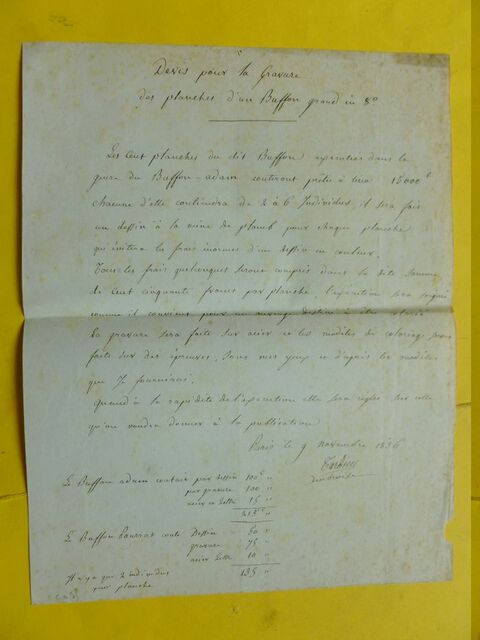 Devis pour la Gravure
des planches d'un Buffon grand in 8°
Les Cent planches du dit Buffon executées dans le
genre du Buffon-adam couteront prêtes à tirer 15000f
chacune d'elle contiendra de 2 à 6 Individus, il sera fait
un dessin à la mine de plomb pour chaque planche
qui évitera les frais énormes d'un dessin en couleur.
Tous les frais quelconques seront compris dans la dite somme
de Cent cinquante francs par planche, l'exécution sera soignée
comme il convient pour un ouvrage destiné à être
la gravure sera faite sur acier et les modèles de coloriage seront
faits sur des épreuves, sous mes yeux et d'après les modèles
que je fournirai.
quand à la rapidité de l'exécution elle sera réglée sur celle
qu'on voudra donner à la publication
Paris le 9 novembre 1836
Le Buffon adam coutait par dessin 100f "
par gravure 100 "
acier et lettre 15 "
215f "
Le Buffon Pourrat coute Dessin 50 "
gravure 75 "
acier lettre 10 "
135 "
Il n'y a que 2 individus
par planche